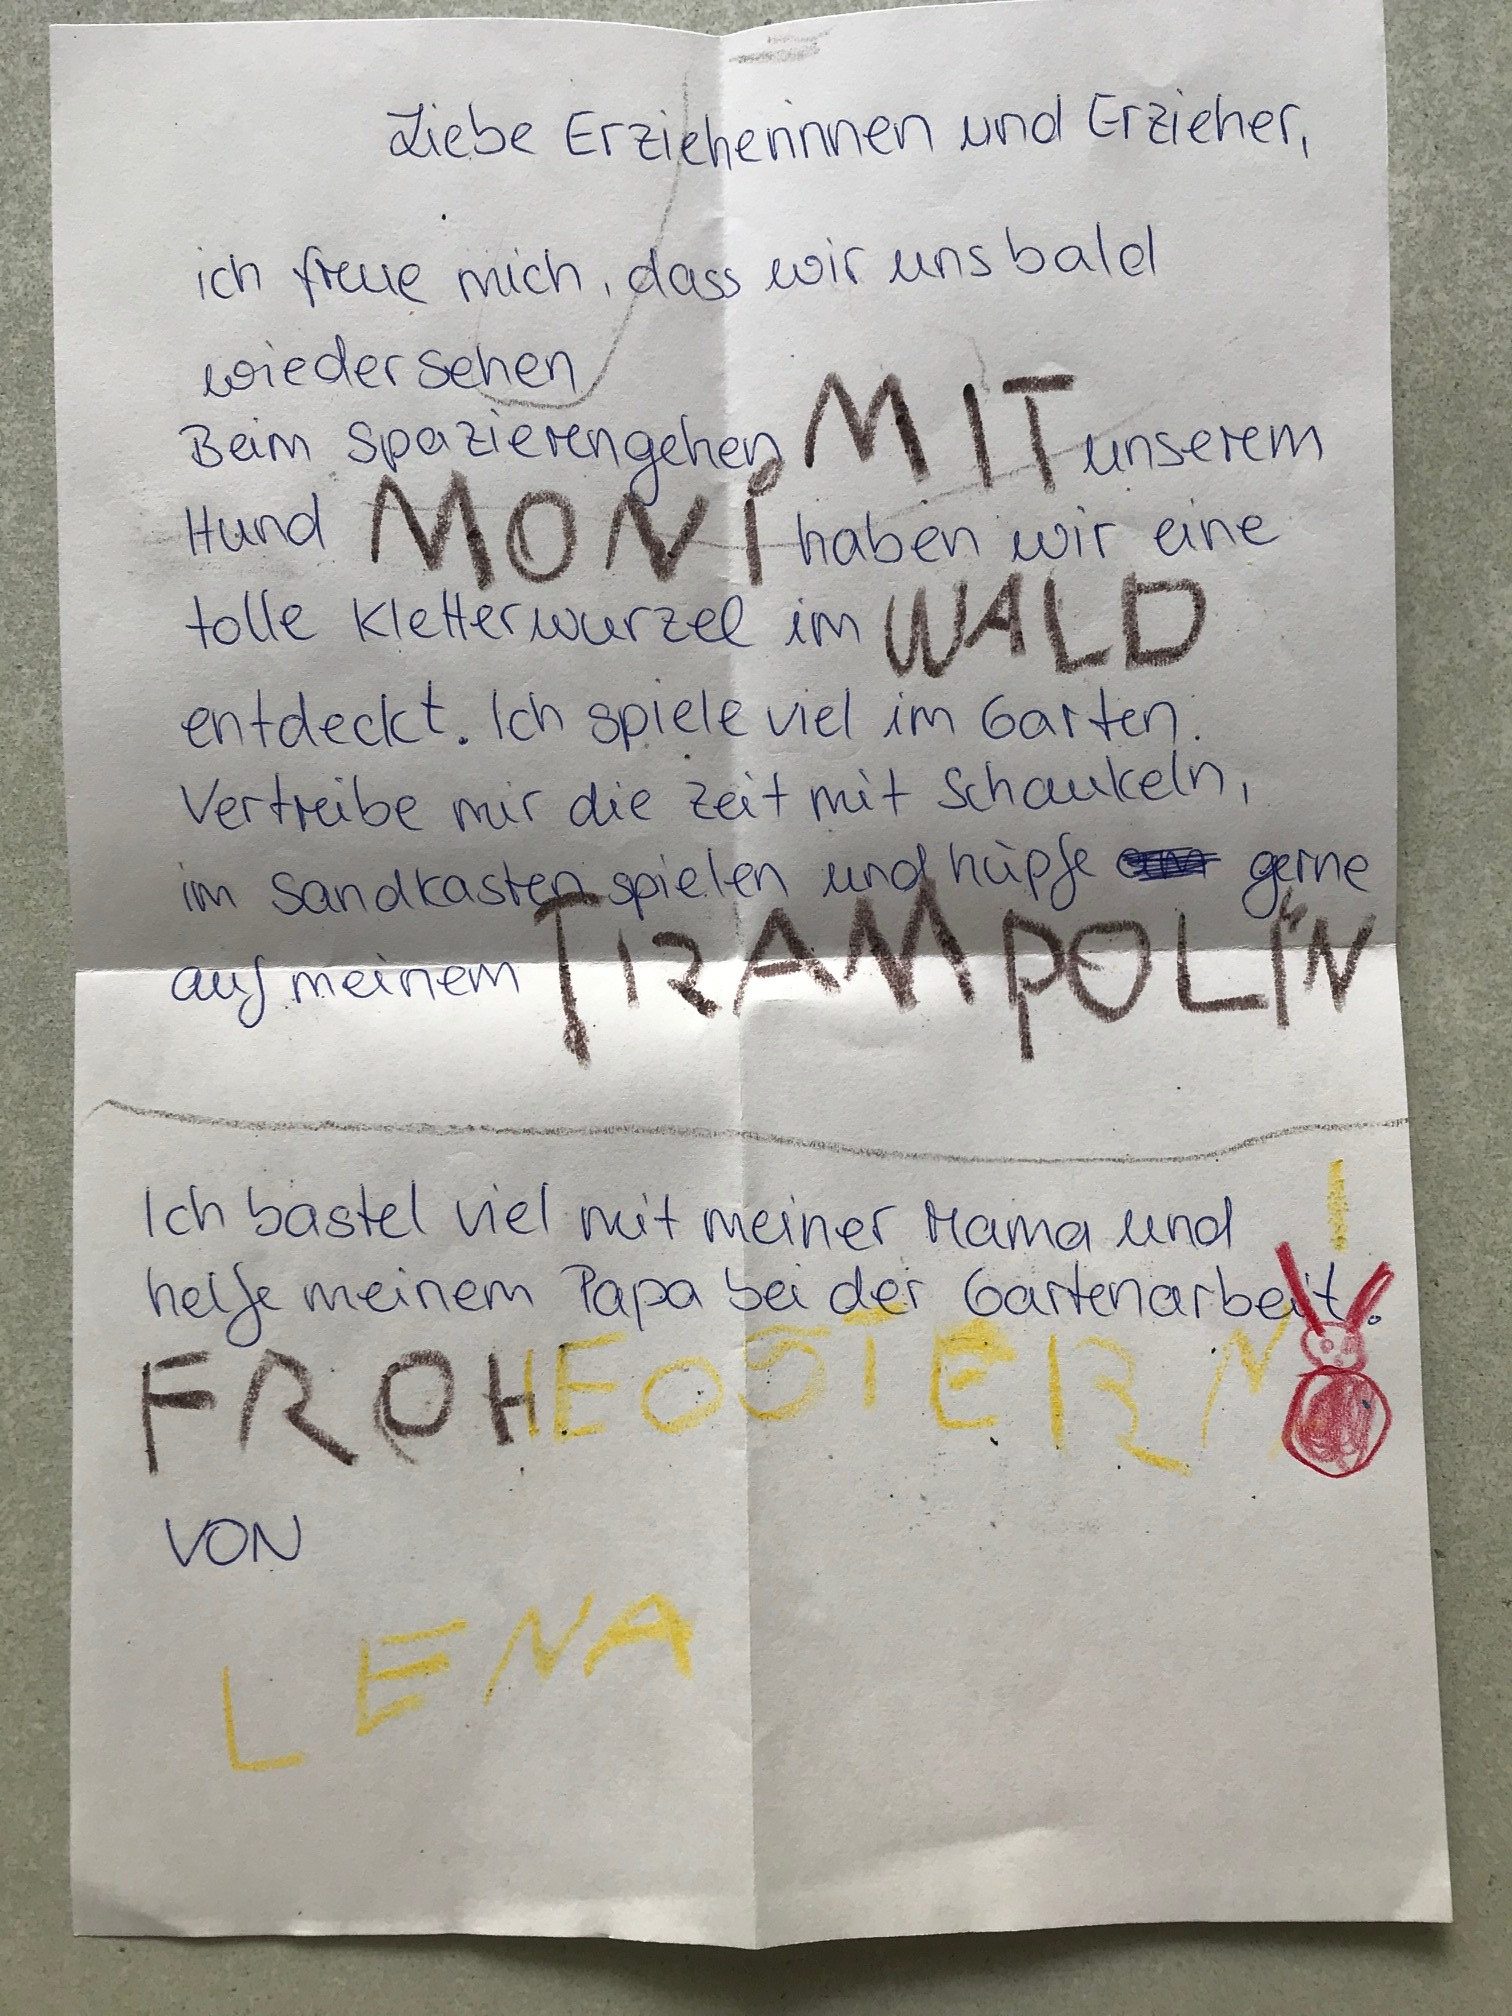 Liebe Erzieherinnen und Erzieher,
ich freue mich, dass wir uns bald
wiedersehen
Beim Spazierengehen MIT unserem
Hund MONi haben wir eine
tolle Kletterwurzel im WALD
entdeckt. Ich spiele viel im Garten.
Vertreibe mir die Zeit mit Schaukeln,
im Sandkasten spielen und hüpfe gerne
auf meinem TRAMPOLIN
Ich bastel viel mit meiner Mama und
helfe meinem Papa bei der Gartenarbeit.
FROHE OSTERN!
VON
LENA